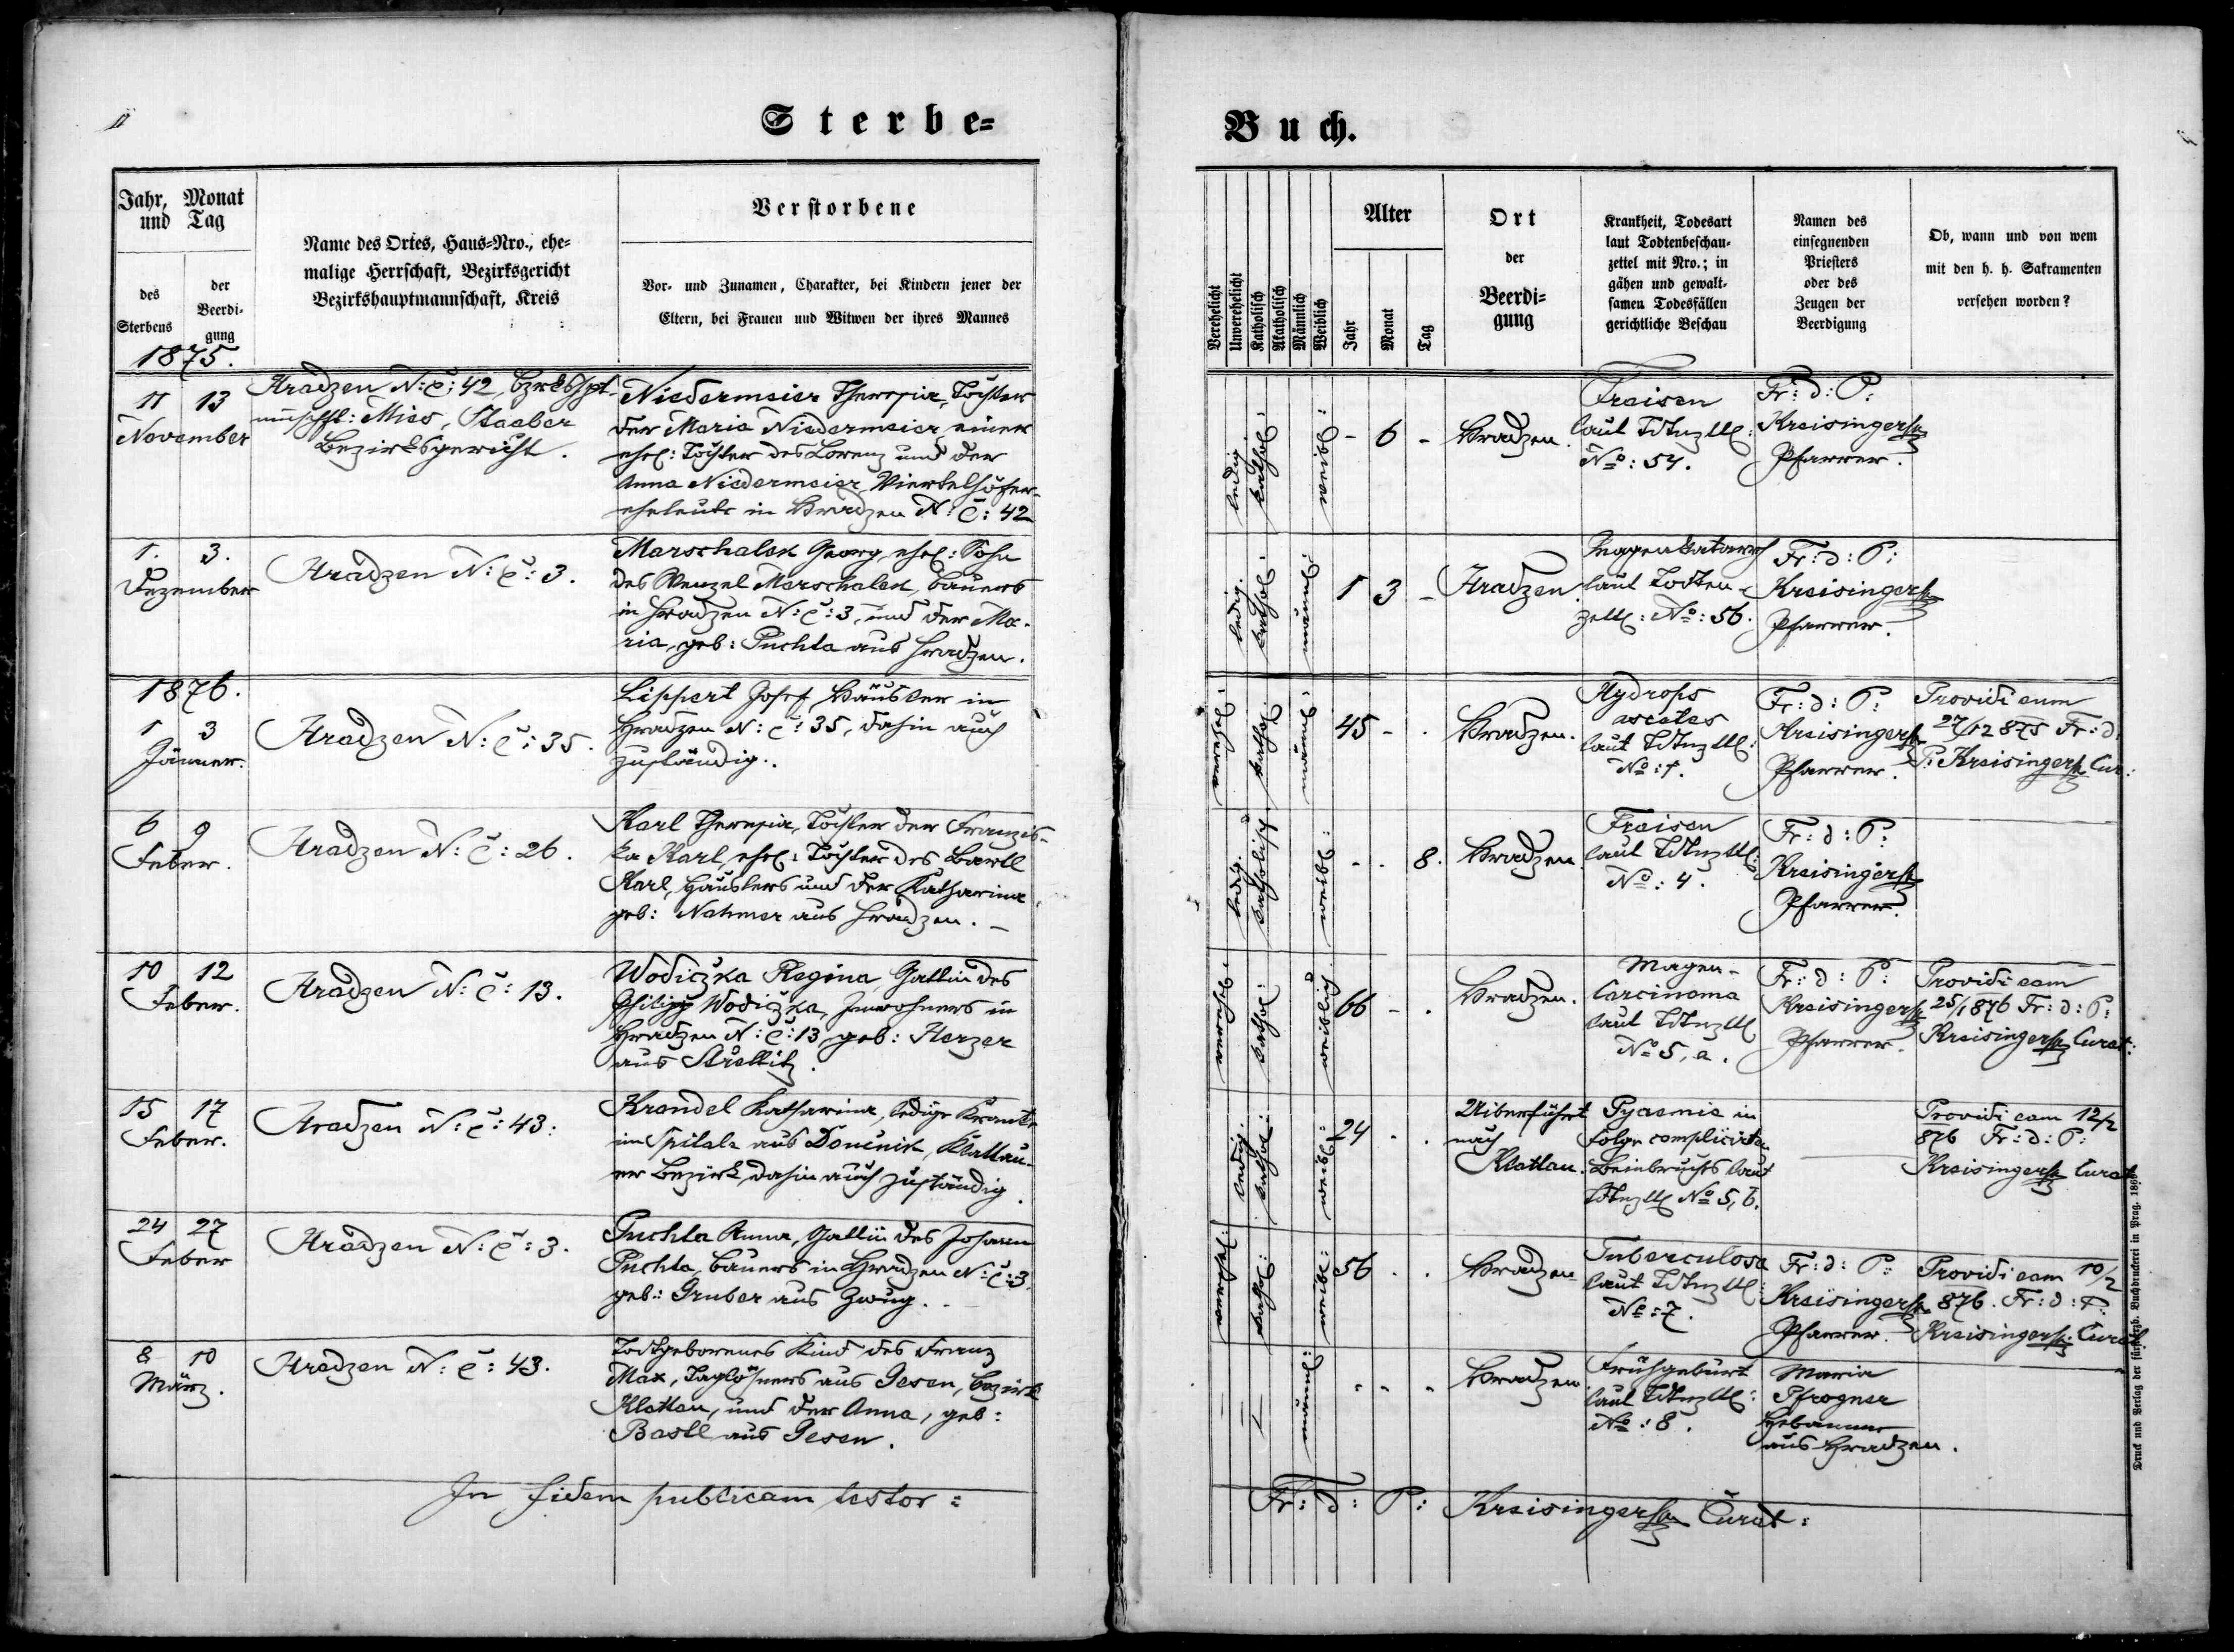 Sterbe=
Buch.
Jahr, Monat
und Tag
des
Sterbens
der
Beerdi-
gung
Name des Ortes, Haus=Nro., ehe=
malige Herrschaft, Bezirksgericht
Bezirkshauptmannschaft, Kreis
Verstorbene
Vor- und Zunamen, Charakter, bei Kindern jener der
Eltern, bei Frauen und Witwen der ihres Mannes
Verehelicht
Unverehelicht
Katholisch
Akatholisch
Männlich
Weiblich
Alter
Jahr
Monat
Tag
Ort
der
Beerdi=
gung
Krankheit, Todesart
laut Todtenbeschau-
zettel mit Nro.; in
gähen und gewalt-
samen Todesfällen
gerichtliche Beschau
Namen des
einsegnenden
Priesters
oder des
Zeugen der
Beerdigung
Ob, wann und von wem
mit den h. h. Sakramenten
versehen worden?
1875.
11 13
November
Hradzen N: č: 42, bzrkshpt-
mschft: Mies, Staaber
Bezirksgericht.
Niedermeier Theresia, Tochter
der Maria Niedermeier, einer
ehel: Tochter des Lorenz und der
Anna Niedermeier, Viertelhöfer-
eheleute in Hradzen N: č: 42
ledig
kathol:
weibl:
- 6 -
Hradzen.
Fraisen
laut Tdtnzttl:
No: 54.
Fr: d: P:
Kreisinger
Pfarrer.
1. 3.
Dezember
Hradzen N: č: 3.
Marschalek Georg, ehel: Sohn
des Wenzel Marschalek, Bauers
in Hradzen N: č: 3, und der Ma-
ria, geb: Puchta aus Hradzen.
ledig.
kathol:
männl:
1 3 -
Hradzen.
Magenkatarrh
laut Todten-
zettl: No: 56.
Fr: d: P:
Kreisinger
Pfarrer.
1876.
1 3
Jänner.
Hradzen N: č: 35.
Lippert Josef, Häusler in
Hradzen N: č: 35, dahin auch
zuständig.
verehel:
kathol:
männl:
45 - .
Hradzen.
Hydrops
ascites
laut Tdtnzttl:
No: 1.
Fr: d: P:
Kreisinger
Pfarrer.
Providi eum
27/12 875 Fr: d:
P: Kreisinger Cur:
6 9
Feber.
Hradzen N: č: 26.
Karl Theresia, Tochter der Franzis-
ka Karl, ehel: Tochter des Bartl
Karl, Häuslers und der Katharina
geb: Nahmer aus Hradzen. -
ledig.
katholisch
weibl:
- . 8.
Hradzen
Fraisen
laut Tdtnzttl:
No: 4.
Fr: d: P:
Kreisinger
Pfarrer.
10 12
Feber.
Hradzen N: č: 13.
Wodiczka Regina, Gattin des
Philipp Wodiczka, Inwohners in
Hradzen N: č: 13, geb: Herzer
aus
verehel:
kathol:
weiblich
66 - .
Hradzen.
Magen-
Carcinoma
laut Tdtnzttl
No 5, a.
Fr: d: P:
Kreisinger
Pfarrer.
Providi eam
25/1 876 Fr: d: P:
Kreisinger Curat:
15 17
Feber.
Hradzen N: č: 43:
Krendel Katharina, ledige Kranke
im Spitale aus Klattau-
er Bezirk, dahin auch zuständig.
ledig.
kathol:
weibl:
24 . .
Uiberführt
nach
Klattau.
Pyaemie in
Folge
Beinbruchs laut
Tdtnzttl No 5, b.
Providi eam 12/2
876 Fr: d: P:
Kreisinger Curat
24 27
Feber
Hradzen N: č: 3.
Puchta Anna, Gattin des Johann
Puchta, Bauers in Hradzen N: č: 3,
geb: Gruber aus Zwug.
verehel:
kathol:
weibl:
56 . .
Hradzen
Tuberculosa
laut Tdtnzttl:
No: 7.
Fr: d: P:
Kreisinger
Pfarrer.
Providi eam 10/2
876. Fr: d: P:
Kreisinger Curat
8 10
März.
Hradzen N: č: 43.
Todtgeborenes Kind des Franz
Max, Taglöhners aus Gesen, Bezirk
Klattau, und der Anna, geb:
Bastl aus Gesen.
männl:
Hradzen
Frühgeburt
laut Tdtnzttl:
No: 8.
Maria
Pfrogner
Hebamme
aus Hradzen.
In fidem publicam testor:
Fr: D: P: Kreisinger Curat:
Druck und Verlag der fürsterzb. Buchdruckerei in Prag.